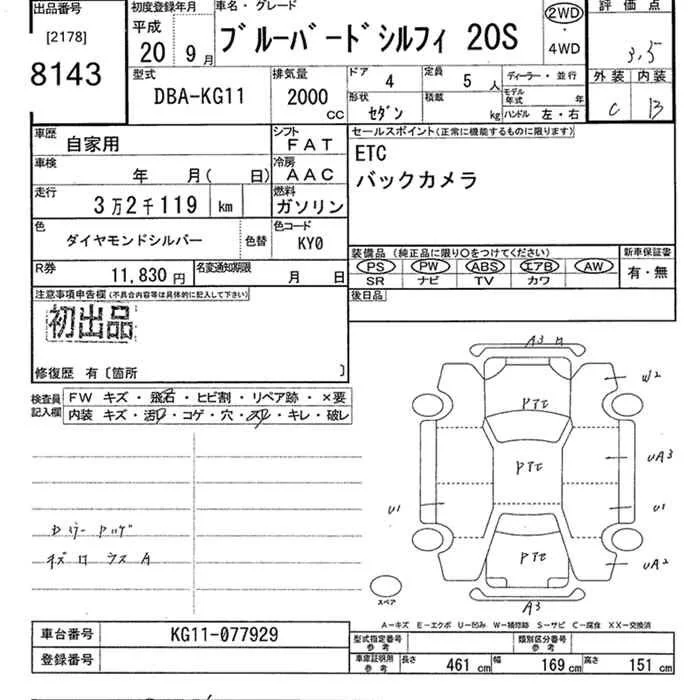 出品番号 初度登録年月 車名・グレード 2WD 評価点
[2178] 平成 ・
8143 20 9月 ブルーバードシルフィ 20S 4WD 3.5
外装 内装
型式 排気量 ドア 4 定員 5人 ディーラー・並行 C B
DBA-KG11 2000cc 形状 セダン 積載 kg モデル年式 年
ハンドル 左・右
車歴 自家用 シフト FAT セールスポイント(正常に機能するものに限ります)
車検 年 月( 日) 冷房 AAC ETC
走行 3万2千119 km 燃料 ガソリン バックカメラ
色 ダイヤモンドシルバー 色替 色コード KY0
R券 11,830円 名変通知期限 月 日
装備品(純正品に限り○をつけてください) 新車保証書
PS PW ABS エアB AW 有・無
SR ナビ TV カワ
後日品
注意事項申告欄(不具合内容等は具体的に記入して下さい)
初出品
修復歴 有〔箇所 〕
検査員記入欄 FW キズ・飛石・ヒビ割・リペア跡・×要
内装 キズ・汚レ・コゲ・穴・スレ・キレ・破レ
A3
W2
PTセ
PTセ
UA3
U1
U1
PTセ
UA2
A3
スペア
A-キズ E-エクボ U-凹み W-補修跡 S-サビ C-腐食 XX-交換済
車台番号 KG11-077929 型式指定番号 参考 類別区分番号 参考
登録番号 車庫証明用 参考 長さ 461cm 幅 169cm 高さ 151cm